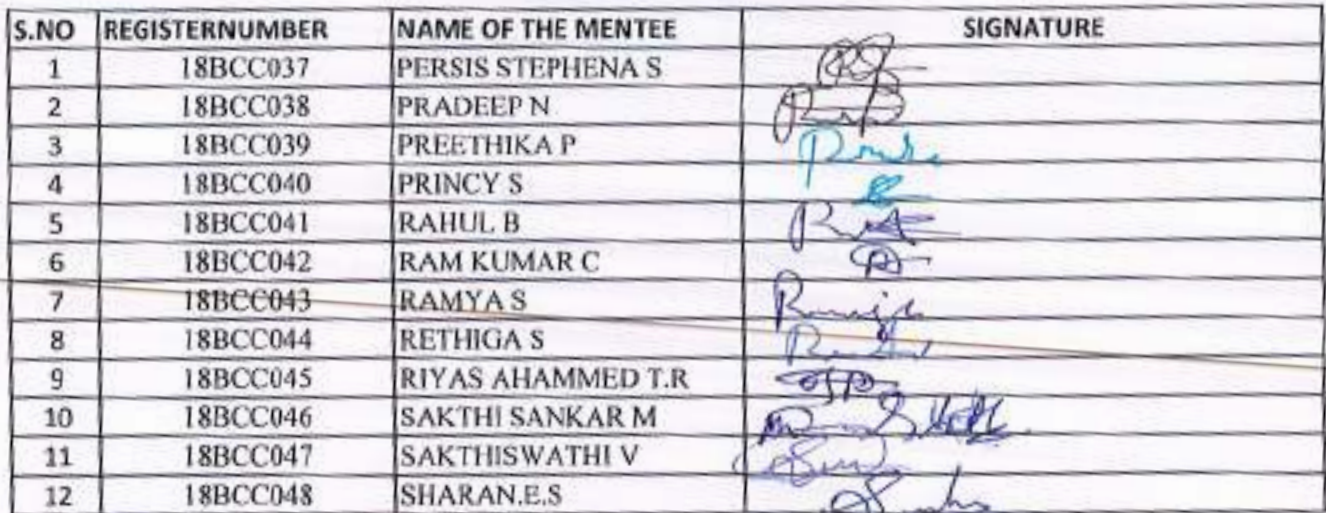 S.NO REGISTERNUMBER NAME OF THE MENTEE SIGNATURE
1 18BCC037 PERSIS STEPHENA S
2 18BCC038 PRADEEP N
3 18BCC039 PREETHIKA P
4 18BCC040 PRINCY S
5 18BCC041 RAHUL B
6 18BCC042 RAM KUMAR C
7 18BCC043 RAMYA S
8 18BCC044 RETHIGA S
9 18BCC045 RIYAS AHAMMED T.R
10 18BCC046 SAKTHI SANKAR M
11 18BCC047 SAKTHISWATHI V
12 18BCC048 SHARAN.E.S